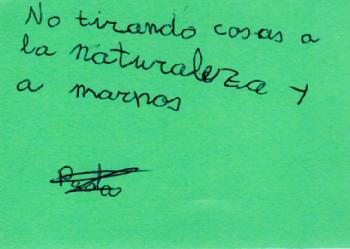 No tirando cosas a
la naturaleza y
a marnos